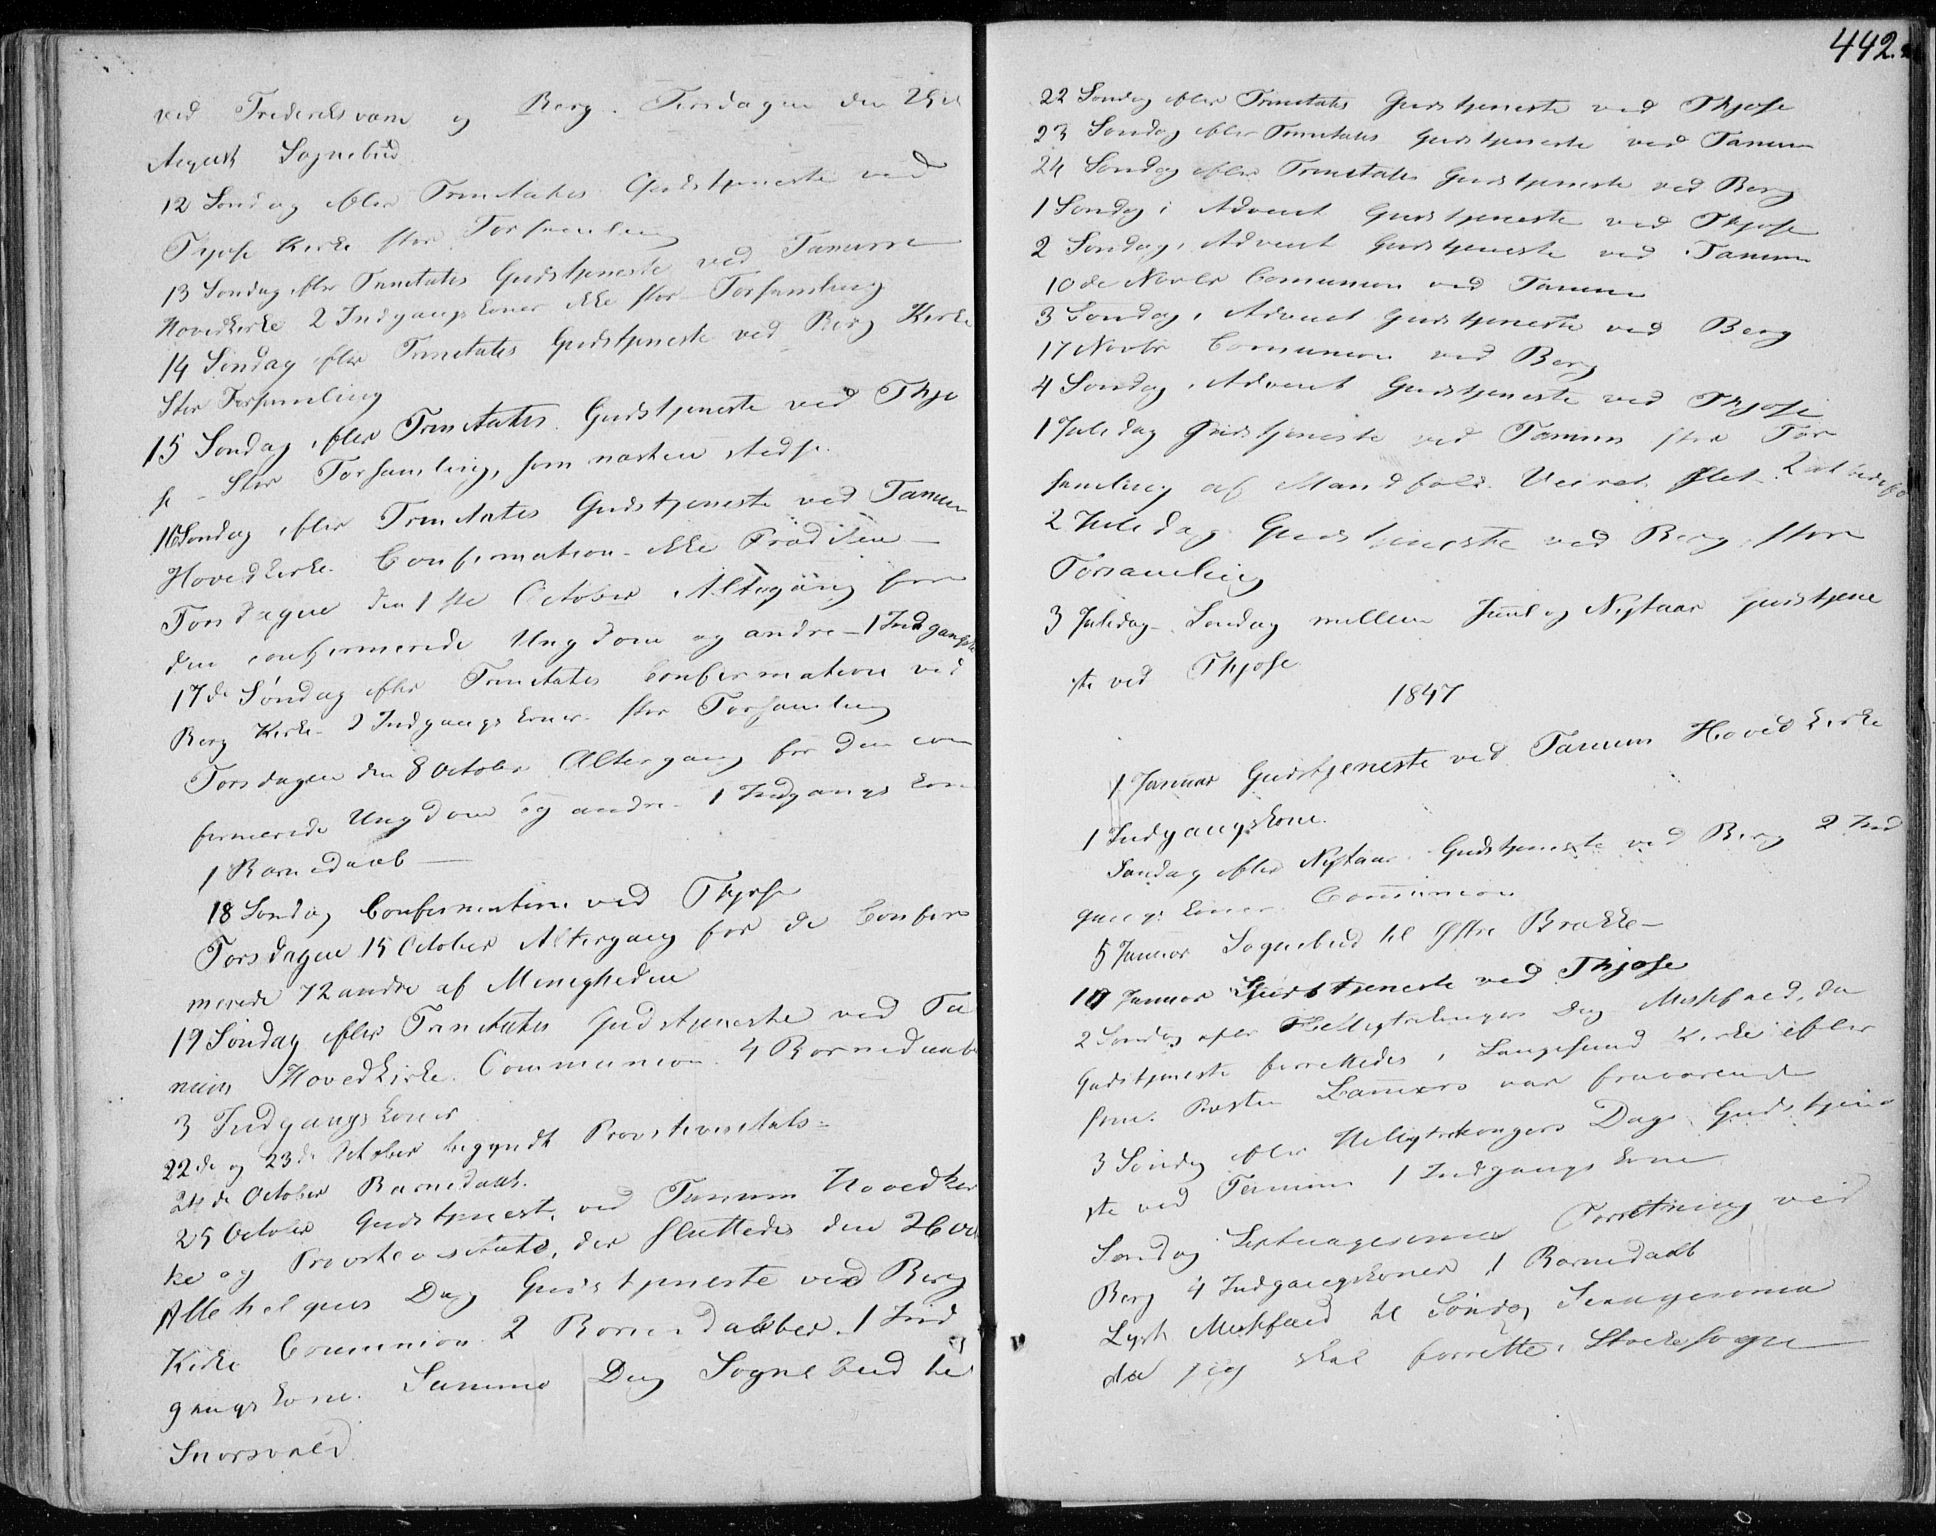 442.
ved Frederiksværn og Berg. Tirsdagen den 25de
August Sognebud
12 Søndag efter Trinitatis Gudstjeneste ved
Thjose Kirke stor Forsamling
13 Søndag efter Trinitatis Gudstjeneste ved Tanum
Hovedkirke 2 Indgangskoner ikke stor Forsamling
14 Søndag efter Trinitatis Gudstjeneste ved Berg Kirke
Stor Forsamling
15 Søndag efter Trinitatis Gudstjeneste ved Thjo
se - Stor Forsamling, som næsten stedse.
16 Søndag efter Trinitatis Gudstjeneste ved Tanum
Hovedkirke. Confirmation - ikke Prædiken -
Torsdagen den 1ste October Altergang for
den confirmerede Ungdom og andre - 1 Indgangsko
17de Søndag efter Trinitatis Confirmation ved
Berg Kirke - 2 Indgangskoner. stor Forsamling
Torsdagen den 8 October Altergang for den con
firmerede Ungdom og andre - 1 Indgangskone
1 Barnedaab -
18 Søndag Confirmation ved Thjose
Torsdagen 15 October Altergang for de Confir
merede 72 andre af Menigheden
19 Søndag efter Trinitatis Gudstjeneste ved Ta
num Hovedkirke. Communion 4 Barnedaab
3 Indgangskoner
22de og 23de October begyndt Provstevisitats -
24de October Barnedaab.
25 October Gudstjeneste ved Tanum Hovedkir
ke og Provstevisitats, der sluttedes den 26de
Allehelgens Dag Gudstjeneste ved Berg
Kirke Communion 2 Barnedaaber 1 Ind
gangskone. Samme Dag Sognebud til

22 Søndag efter Trinitatis Gudstjeneste ved Thjose
23 Søndag efter Trinitatis Gudstjeneste ved Tanum
24 Søndag efter Trinitatis Gudstjeneste ved Berg
1 Søndag i Advent Gudstjeneste ved Thjose
2 Søndag i Advent Gudstjeneste ved Tanum
10de Novbr Comunion ved Tanum
3 Søndag i Advent Gudstjeneste ved Berg
17 Novbr Comunion ved Berg
4 Søndag i Advent Gudstjeneste ved Thjose
1 Juledag Gudstjeneste ved Tanum stor For
samling af Mandfolk. Veiret slet.
2 Juledag Gudstjeneste ved Berg stor
Forsamling
3 Juledag - Søndag mellem Juul og Nytaar Gudstjene
ste ved Thjose
1847
1 Januar Gudstjeneste ved Tanum Hovedkirke
1 Indgangskone.
Søndag efter Nytaar. Gudstjeneste ved Berg 2 Ind
gangskoner. Communion
5 Januar Sognebud til Østre Brække -
10 Januar Gudstjeneste ved Thjose
2 Søndag efter Helligtrekongers Dag Messefald, da
Gudstjeneste forrettedes i Langesund Kirke efter
som Præsten Lammers var fraværende
3 Søndag efter Helligtrekongers Dag Gudstjene
ste ved Tanum 1 Indgangskone
Søndag Septuagesima Forretning ved
Berg 4 Indgangskoner 1 Barnedaab
Lyst Messefald til Søndag Sexagesima
da jeg skal forrette i Stokke Sogn